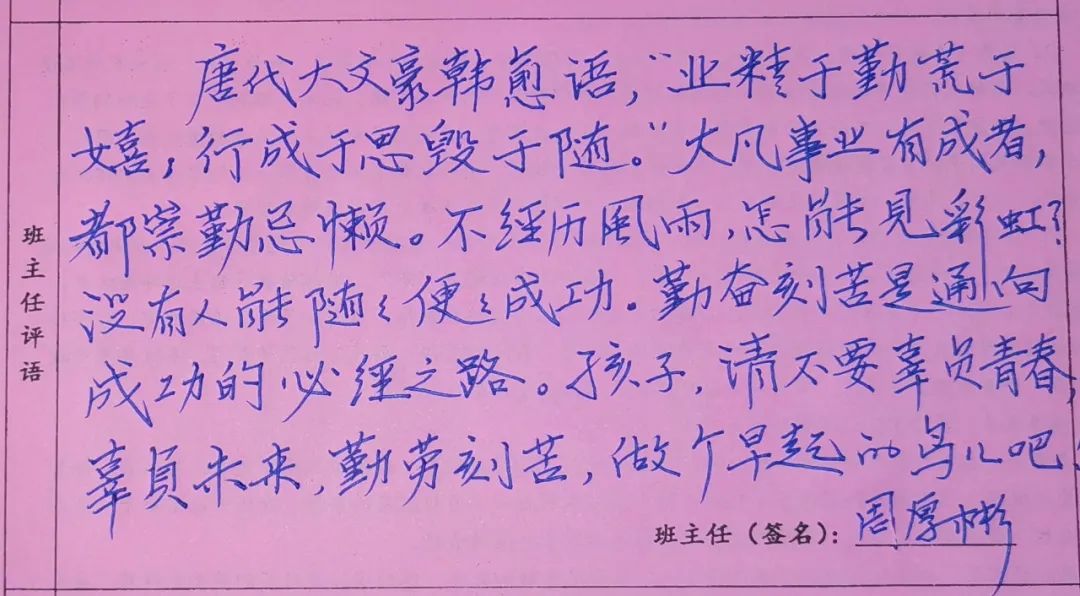 唐代大文豪韩愈语，“业精于勤荒于
嬉，行成于思毁于随。”大凡事业有成者，
都崇勤忌懒。不经历風雨，怎能見彩虹？
没有人能随々便々成功。勤奋刻苦是通向
成功的必经之路。孩子，请不要辜负青春，
辜負未来，勤劳刻苦，做个早起的鸟儿吧
班主任评语
班主任（签名）：周厚彬